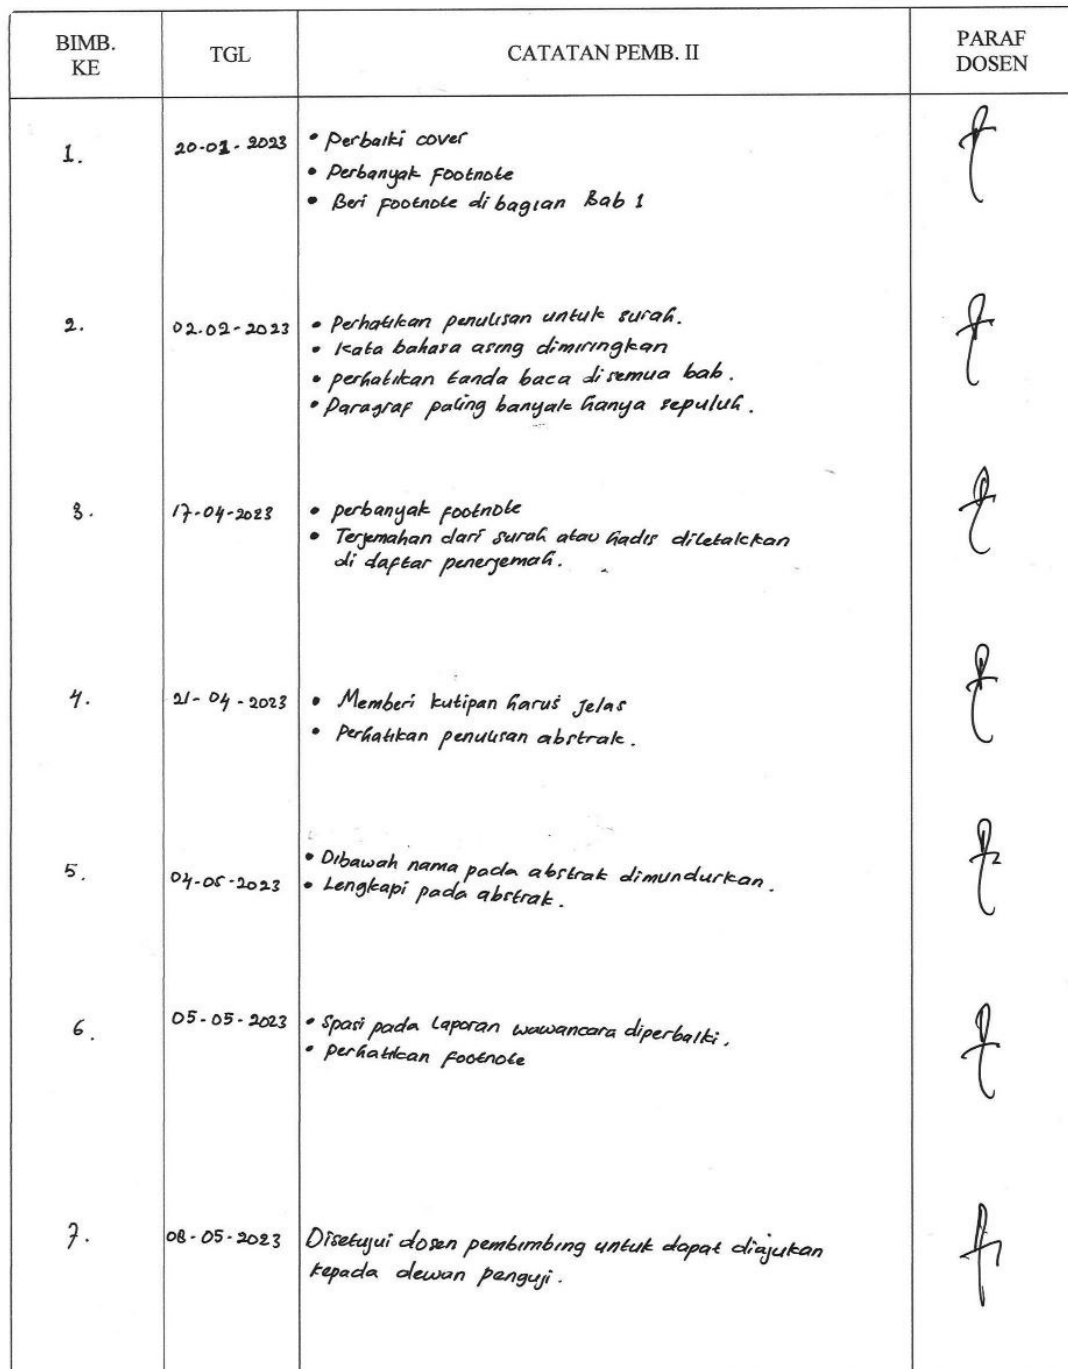 BIMB. KE TGL CATATAN PEMB. II PARAF DOSEN
1. 20-01-2023 • Perbaiki cover
• Perbanyak Footnote
• Beri Footnote di bagian Bab 1
2. 02-02-2023 • Perhatikan penulisan untuk surah.
• Kata bahasa asing dimiringkan
• perhatikan tanda baca di semua bab.
• Paragraf paling banyak hanya sepuluh.
3. 17-04-2023 • perbanyak footnote
• Terjemahan dari surah atau hadis diletakkan
di daftar penerjemah.
4. 21-04-2023 • Memberi kutipan harus jelas
• Perhatikan penulisan abstrak.
5. 04-05-2023 • Dibawah nama pada abstrak dimundurkan.
• Lengkapi pada abstrak.
6. 05-05-2023 • Spasi pada Laporan wawancara diperbaiki.
• perhatikan footnote
7. 08-05-2023 Disetujui dosen pembimbing untuk dapat diajukan
kepada dewan penguji.